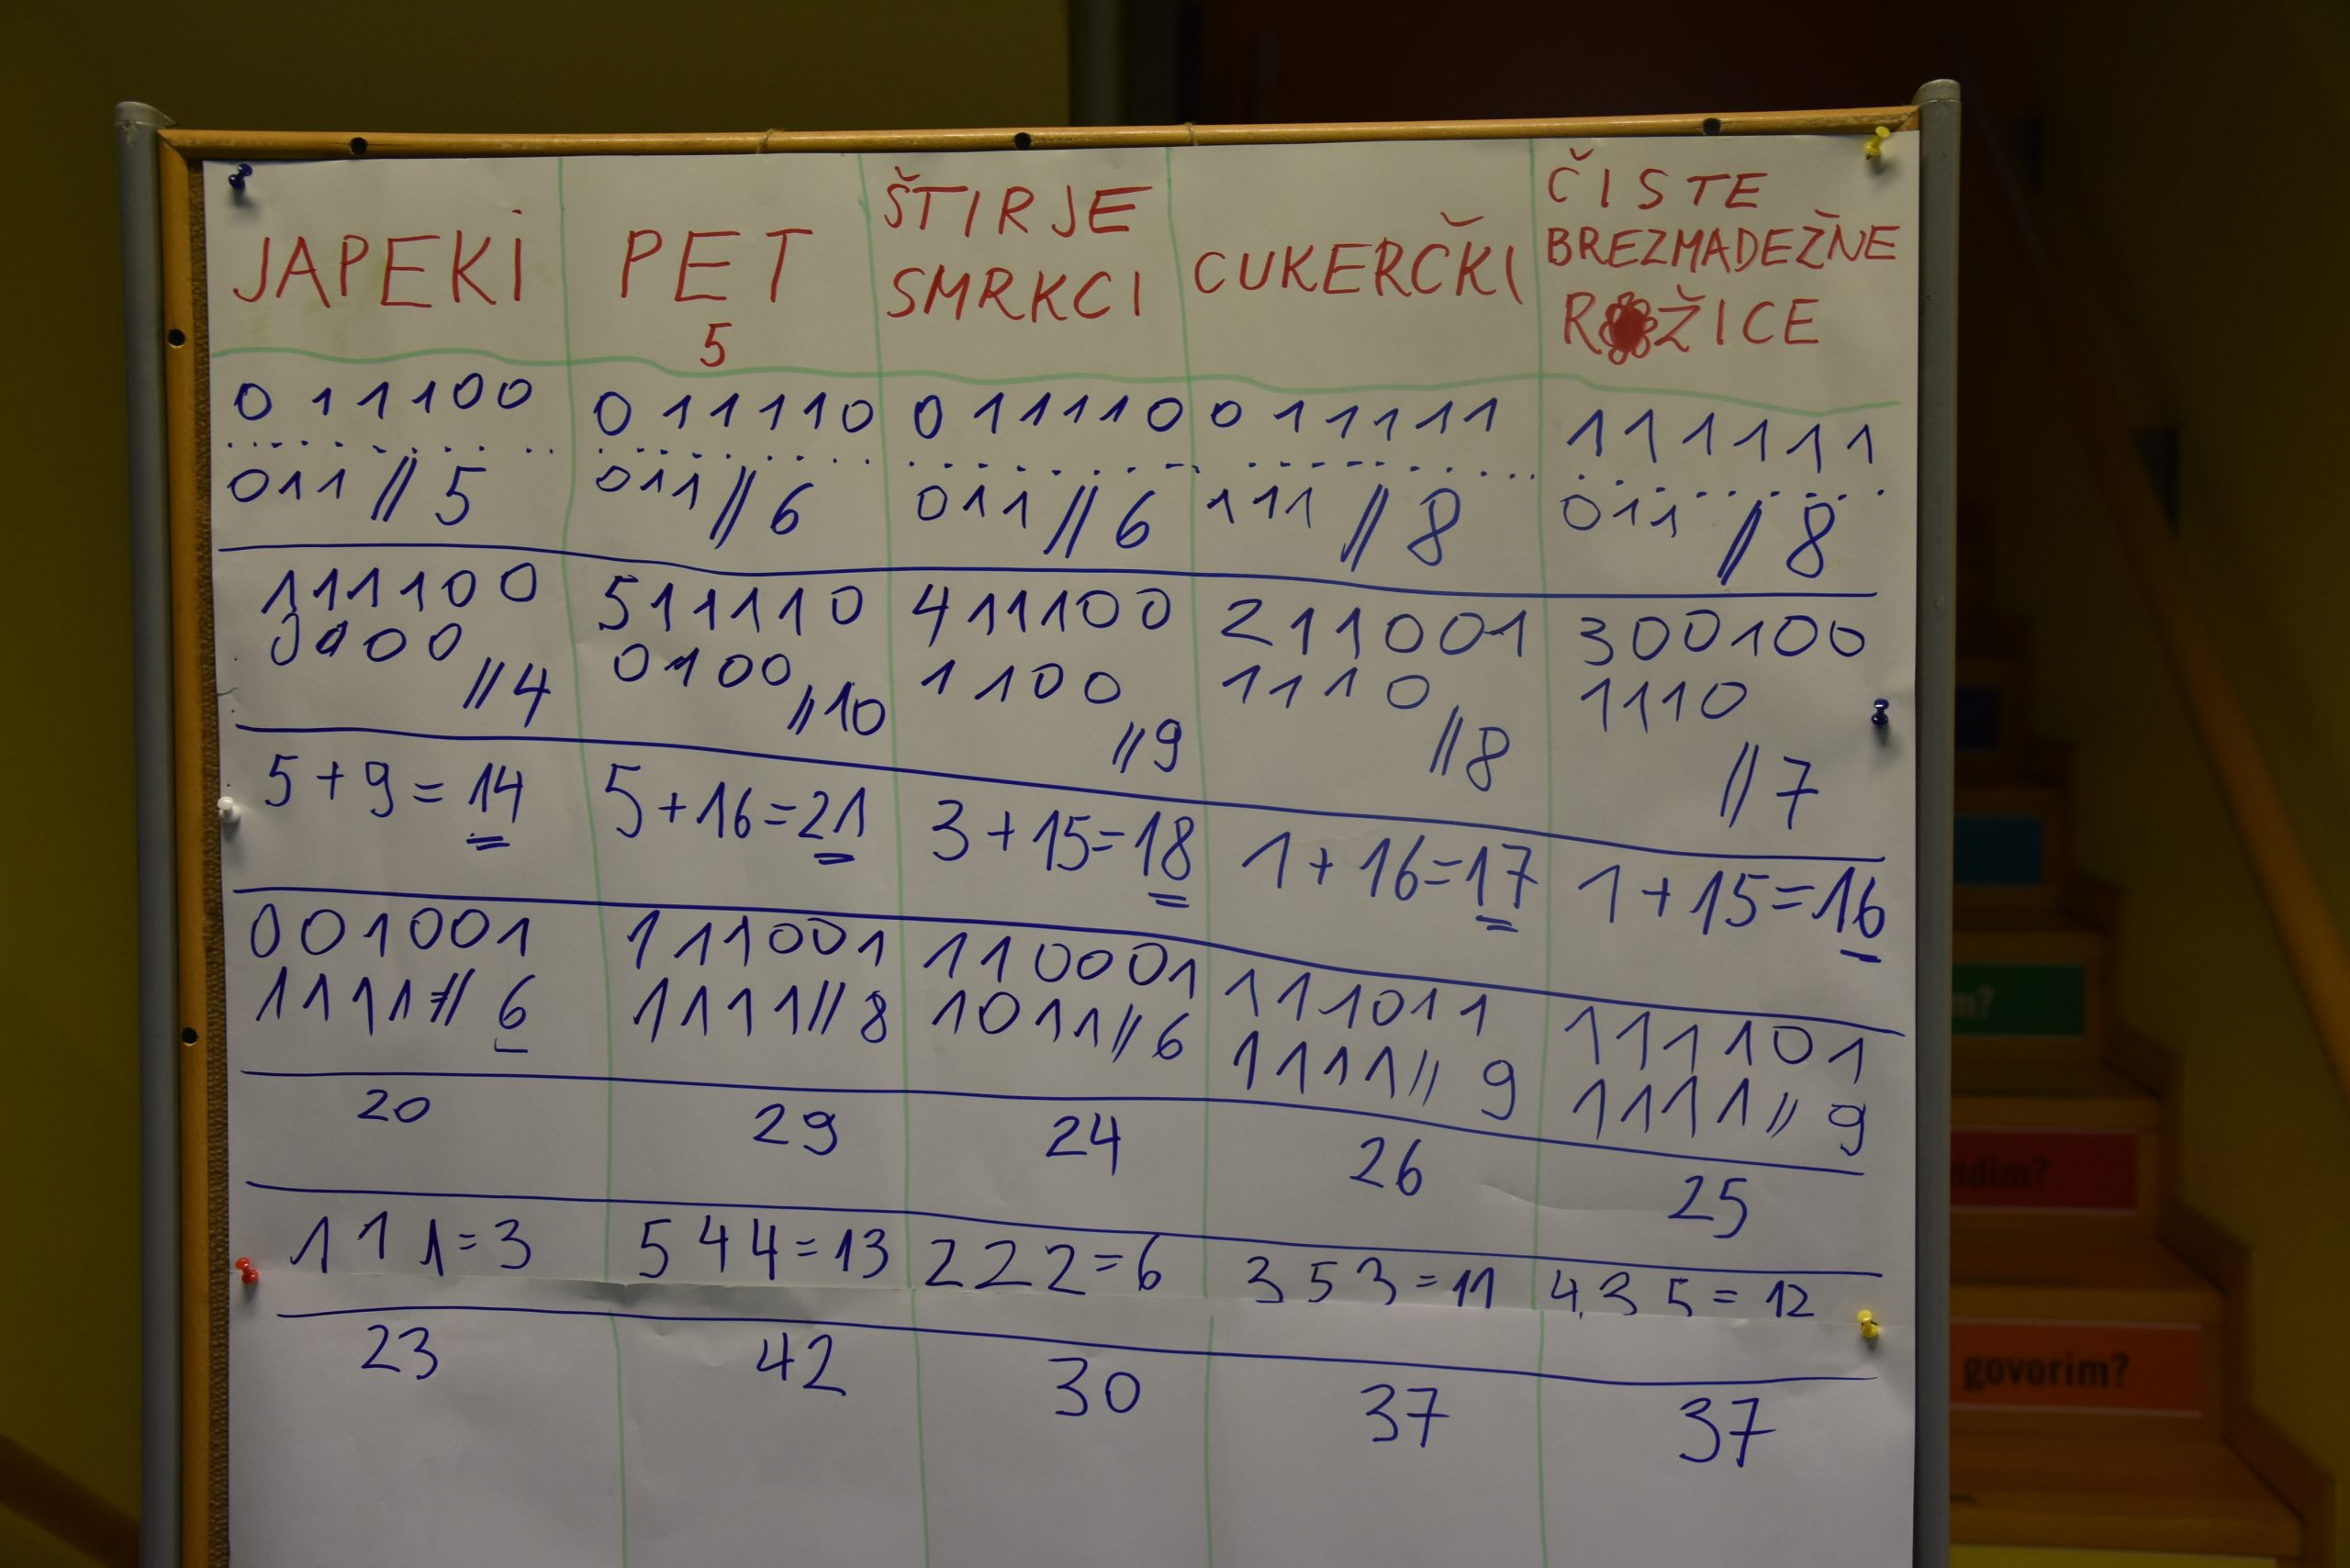 JAPEKI
PET
5
ŠTIRJE
SMRKCI
CUKERČKI
ČISTE
BREZMADEŽNE
ROŽICE
0 1 1 1 0 0
0 1 1 1 1 0
0 1 1 1 1 0
0 1 1 1 1 1
1 1 1 1 1 1
0 1 1 // 5
0 1 1 // 6
0 1 1 // 6
1 1 1 // 8
0 1 1 // 8
1 1 1 1 0 0
5 1 1 1 1 0
4 1 1 1 0 0
2 1 1 0 0 1
3 0 0 1 0 0
0 0 0 0 // 4
0 1 0 0 // 10
1 1 0 0 // 9
1 1 1 0 // 8
1 1 1 0 // 7
5 + 9 = 14
5 + 16 = 21
3 + 15 = 18
1 + 16 = 17
1 + 15 = 16
0 0 1 0 0 1
1 1 1 0 0 1
1 1 0 0 0 1
1 1 1 0 1 1
1 1 1 1 0 1
1 1 1 1 // 6
1 1 1 1 // 8
1 0 1 1 // 6
1 1 1 1 // 9
1 1 1 1 // 9
20
29
24
26
25
1 1 1 = 3
5 4 4 = 13
2 2 2 = 6
3 5 3 = 11
4 3 5 = 12
23
42
30
37
37
govorim?